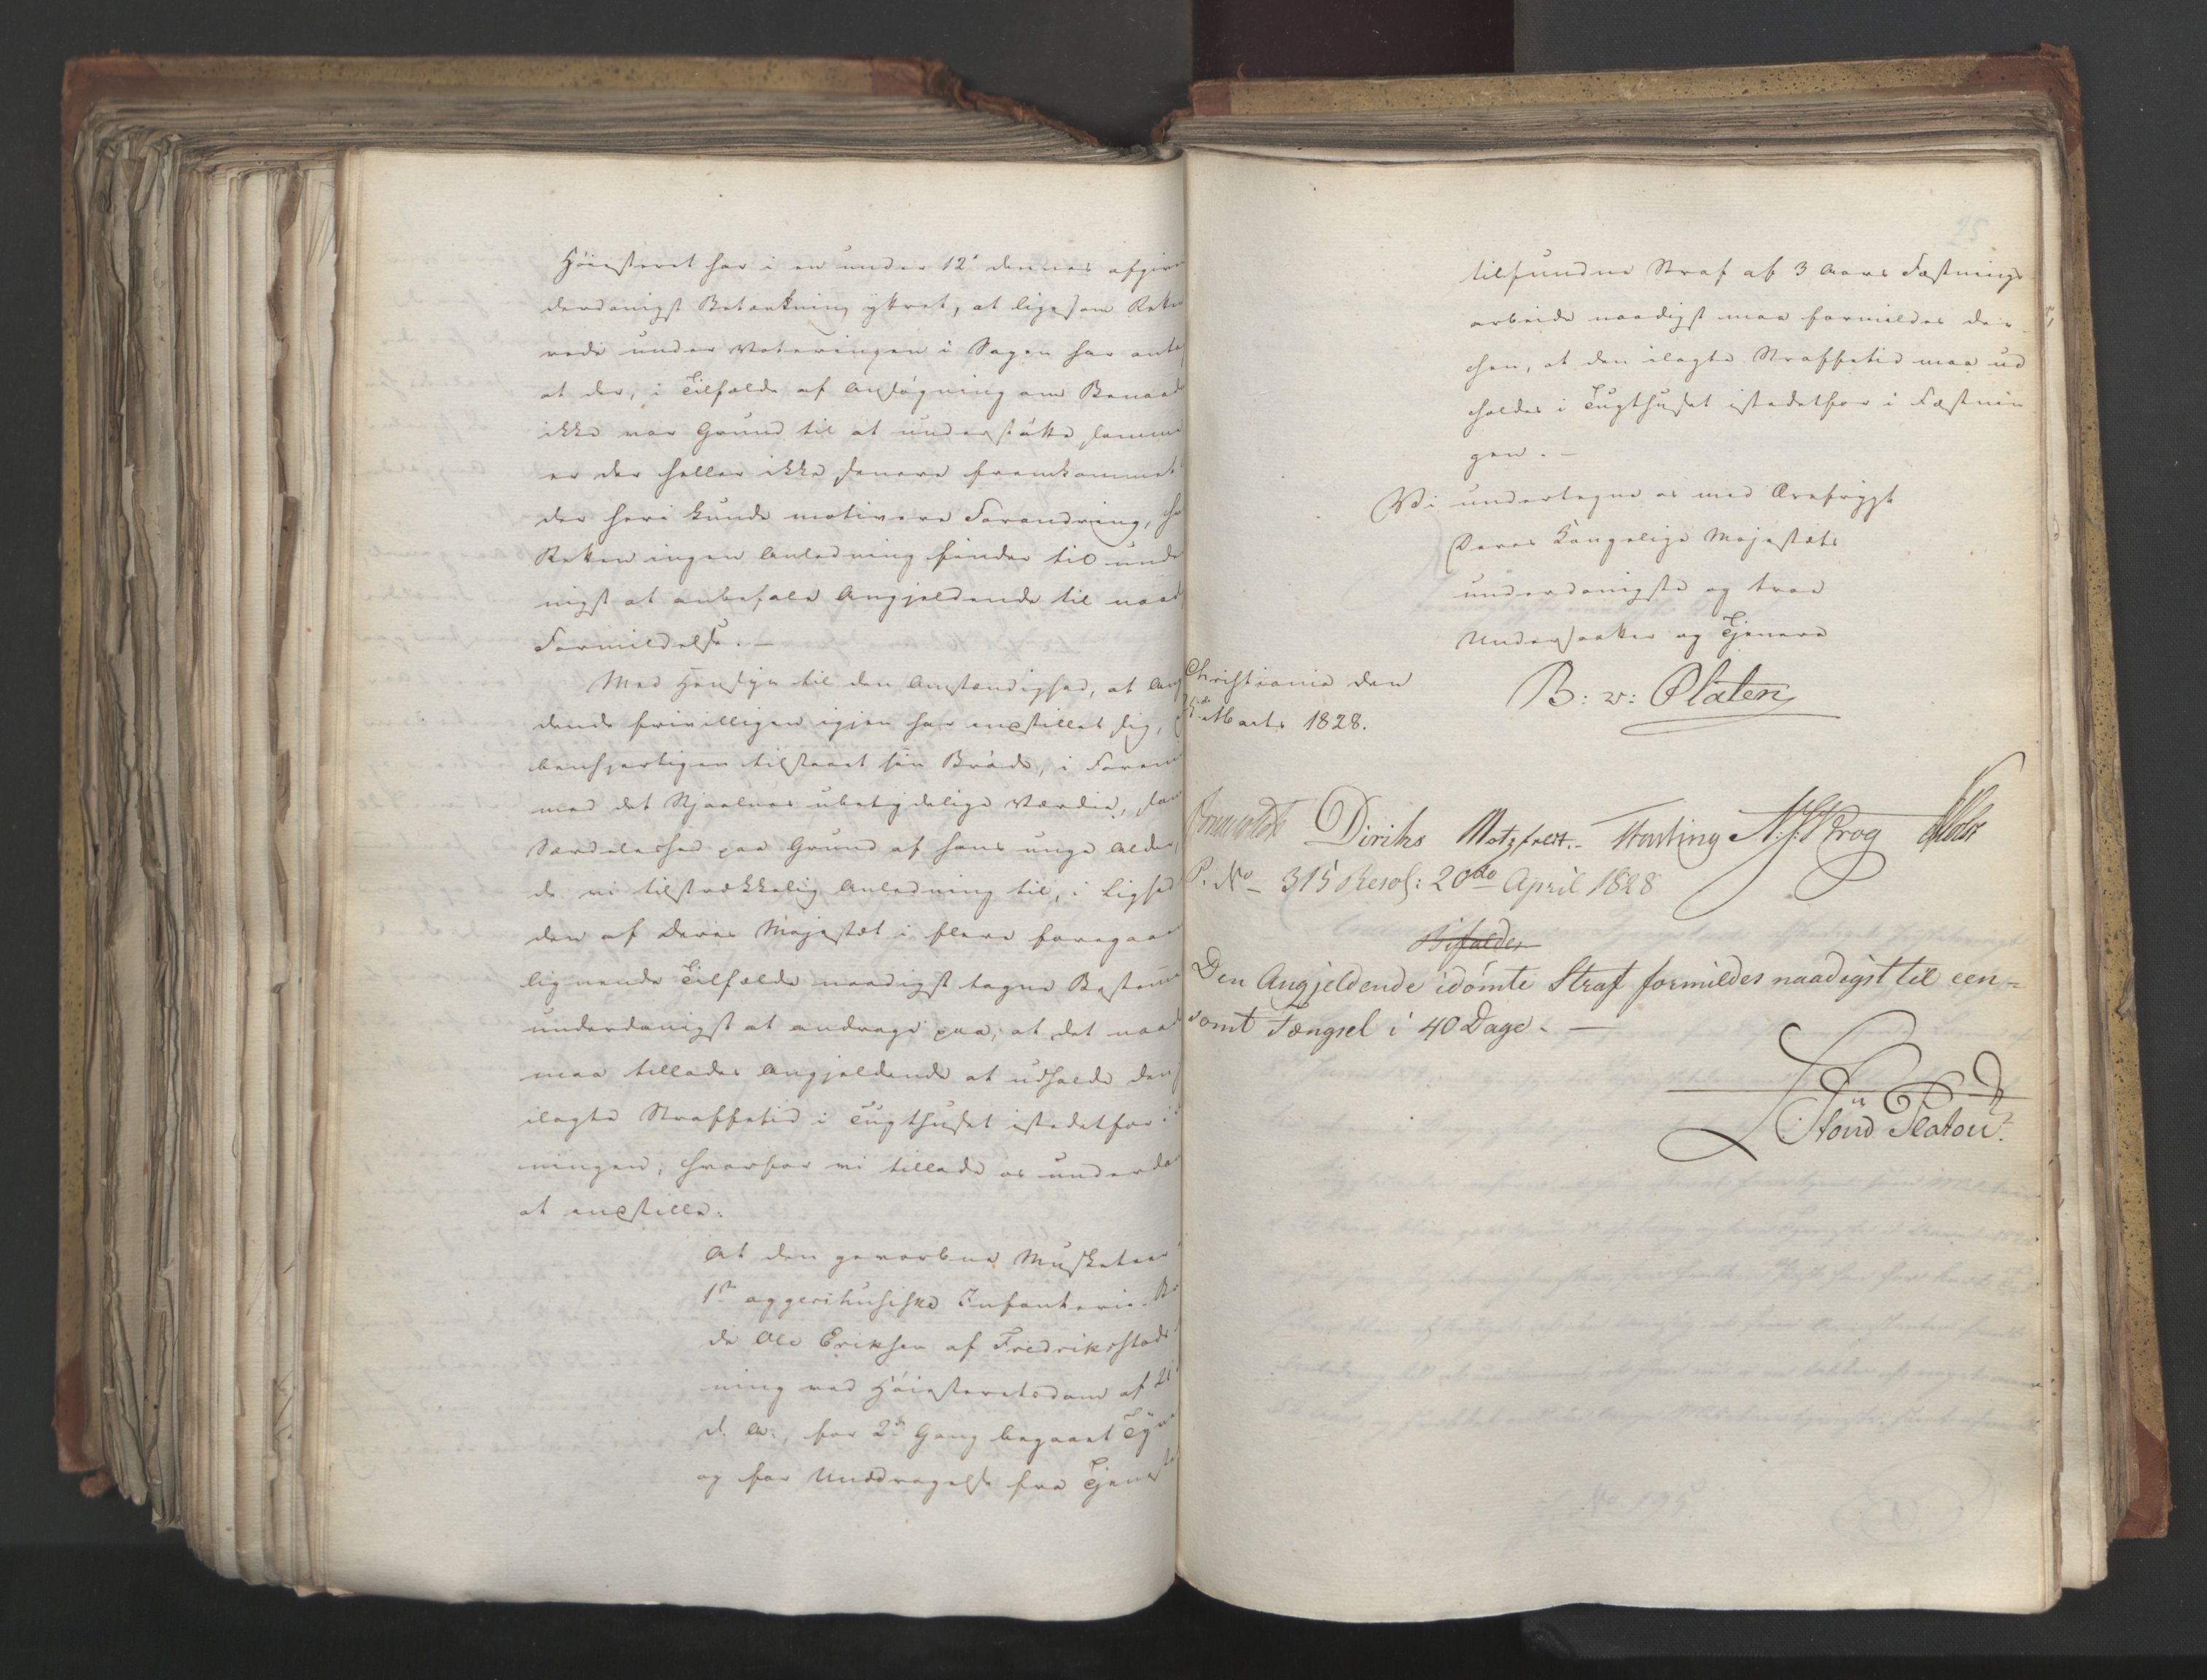 Höiesteret har i en under 12te dennes afgiven
derdanigst Betænkning yttret, at ligesom Retten
rede under Voteringen i Sagen har anta
at der, i Tilfælde af Ansøgning om Benaad
ikke var Grund til at understøtte samme
er der heller ikke senere fremkommet
der heri kunde motivere Forandring, h
Retten ingen Anledning finder til unde
nigst at anbefale Angjeldende til naad
Formildelse. —
Med Hensyn til den Omstændighed, at Ang
dende frivilligen igjen har indstillet sig,
benhjertigen tilstaaet sin Bröde, i Foren
med det Stjaalnes ubetydelige Værdie, sam
Særdeleshed paa Grund af hans unge Alder,
de vi tilstrækkelig Anledning til, i Lighed
den af Deres Majestæt i flere foregaae
lignende Tilfælde naadigst tagne Bestem
underdanigst at andrage paa, at det naad
maa tillades Angjeldende at udholde den
ilagte Straffetid i Tugthuset istedetfor i
ningen; hvorfor vi tillade os underda
at indstille:
At den gevorbne Musketeer
1ste aggershusiske Infanterie-Br
de Ole Eriksen af Fredriksstads
ning ved Höiesteretsdom af 21
d. A., for 2den Gang begaaet Tyve
og for Unddragelse fra Tjeneste
25
tilfundne Straf af 3 Aars Fæstnings
arbeide naadigst maa formildes der-
hen, at den ilagte Straffetid maa ud
holdes i Tugthuset istedetfor i Fæstnin
gen. —
Vi undertegne os med Ærefrygt
Deres Kongelige Majestæts
underdanigste og troe
Undersaatter og Tjenere
Christiania den
Marts 1828.
B: v: Platen
Diriks Motzfeldt. Fasting
P. No 315 Resol: 20de April 1828
Bifaldes
Den Angjeldende idömte Straf formildes naadigst til een=
somt Fængsel i 40 Dage. —